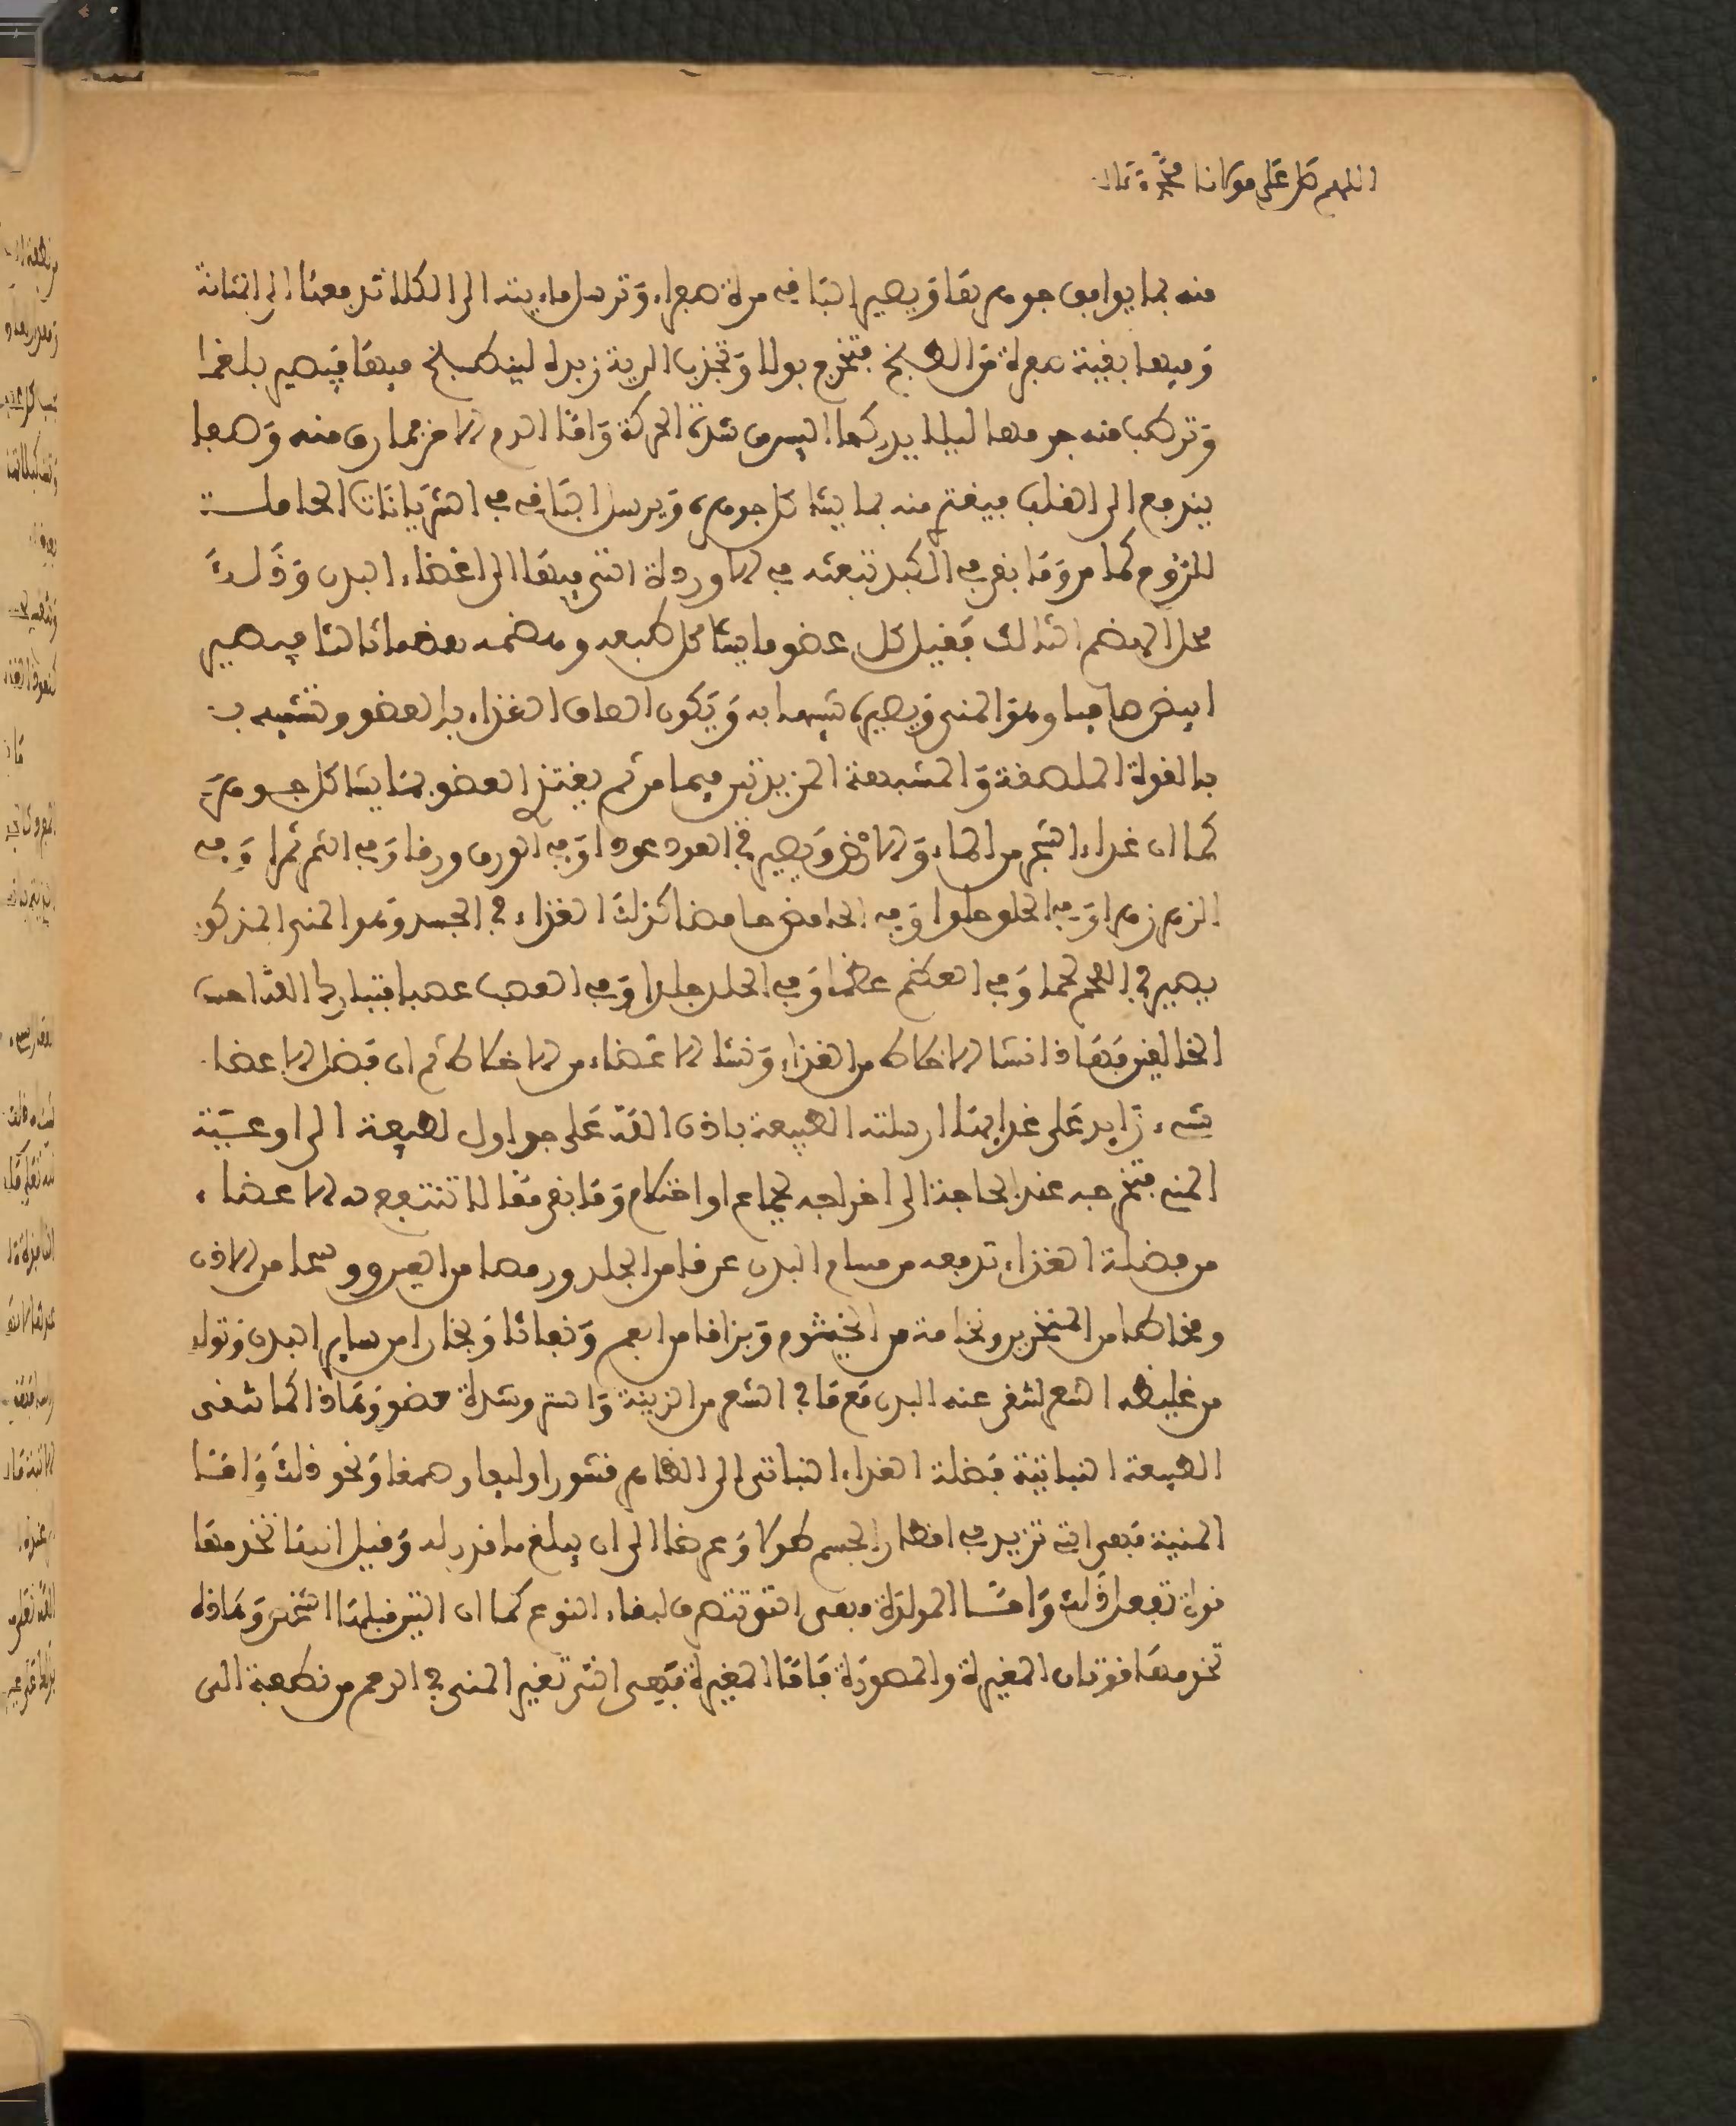 اللهم صل على مولانا محمد وءاله
منه بما يوافق جوهرها ويصير الباقي مرة صفراء وترسل مائيته إلى الكلا تدفعها إلى المثانة
وفيها بقية صفرة من الطبخ فتخرج بولا وتجذب الرية زبده لينطبخ فيها فيصير بلغما
وترطب منه جرمها ليلا يدركها اليبس من شدة الحركة وأما الدم الأحمر فما رق منه وصفا
يندفع إلى القلب فيغتذ منه بما يشاكل جوهره ويرسل الباقي في الشريانات الحاملة
للروح كما مر وما بقي في الكبد تبعثه في الأوردة التي فيها إلى أعضاء البدن وذلك
محل الهضم الثالث فيقبل كل عضو ما يشاكل طبعه ويهضمه هضما ثالثا فيصير
ابيض صافيا وهو المني ويصيره شبيها به ويكون الصاق الغذاء بالعضو وتشبيه ب
بالقوة الملصقة والمشبهة المزيدتين فيما مر ثم يغتذ العضو بما يشاكل جوهره
كما ان غذاء الشجر من الماء والأرض ويصير في العود عودا وفي الورق ورقا وفي الثمر ثمرا وفي
الزهر زهرا وفي الحلو حلوا وفي الحامض حامضا كذلك الغذاء في الجسد وهو المني المذكور
يصير في اللحم لحما وفي العظم عظما وفي الجلد جلدا وفي العصب عصبا فتبارك الله احسن
الخالقين فهذا انشا الأخلاط من الغذاء ونشا الأعضاء من الأخلاط ثم ان فضل الأعضا
شيء زايد على غذايها ارسلته الطبيعة باذن الله على جداول لطيفة الى اوعية
المني فتخرجه عند الحاجة الى اخراجه لجماع او احتلام وما بقي مما لا تنتفع به الأعضاء
من فضلة الغذاء تدفعه من مسام البدن عرقا من الجلد ورمصا من العين ووسخا من الأذن
ومخاطا من المنخرين ونخامة من الخيشوم وبزاقا من الفم ونفاثا وبخارا من ساير البدن وتولد
من غليظه الشعر لتنقي عنه البدن مع ما في الشعر من الزينة والستر وشدة عضو وهذا كما تنقي
الطبيعة النباتية فضلة الغذاء النباتي الى الظاهر قشورا وليفا وصمغا ونحو ذلك وامـا
المنمية فهي التي تزيد في اقطار الجسم طولا وعرضا الى ان يبلغ ما قدر له وقيل انها تخدمها
قوة تفعل ذلك وامـا المولدة فهي التي تتصرف لبقاء النوع كما ان التين قبلها الشخص وهاذه
تخدمها قوتان المغيرة والمصورة فاما المغيرة فهي التي تغير المني في الرحم من نطفة الى